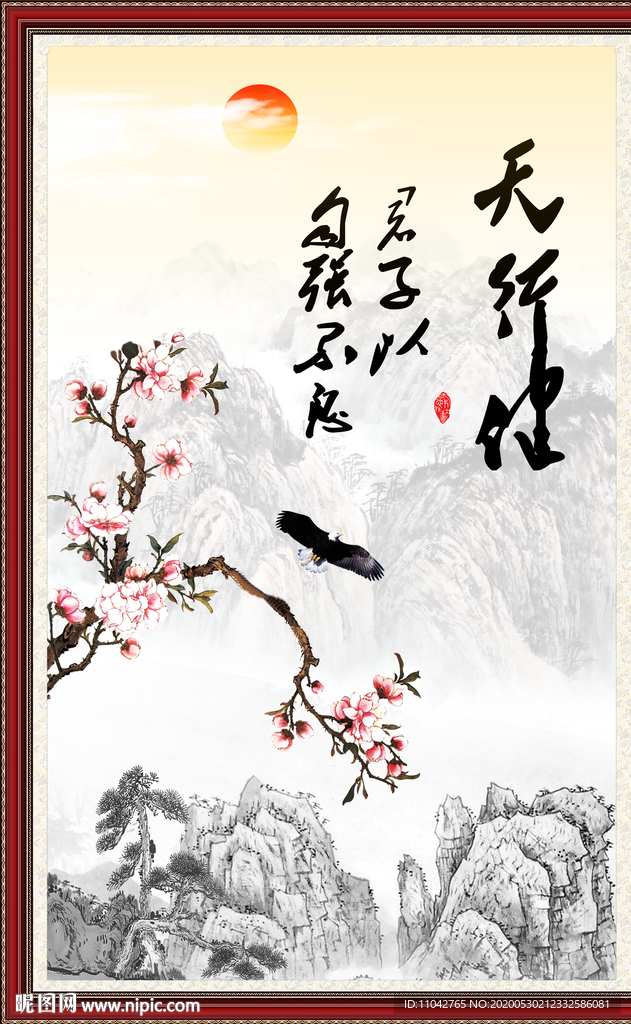 天行健
君子以
自强不息
昵图网 www.nipic.com
ID:11042765 NO:20200530212332586081